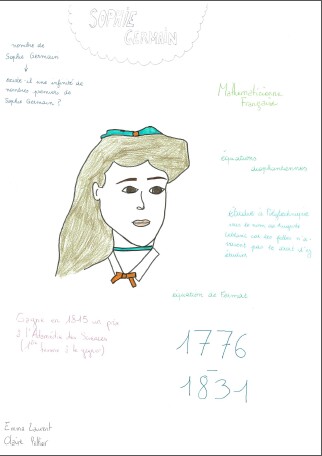 SOPHIE
GERMAIN
nombre de
Sophie Germain
existe-il une infinité de
nombres premiers de
Sophie Germain ?
Mathématicienne
Française
équations
diophantiennes
étudie à Polytechnique
sous le nom de Auguste
Leblanc car les filles n'a-
vaient pas le droit d'y
étudier
équation de Fermat
Gagne en 1815 un prix
à l'Académie des Sciences
(1ère femme à le gagner)
1776
-
1831
Emma Laurent
Claire